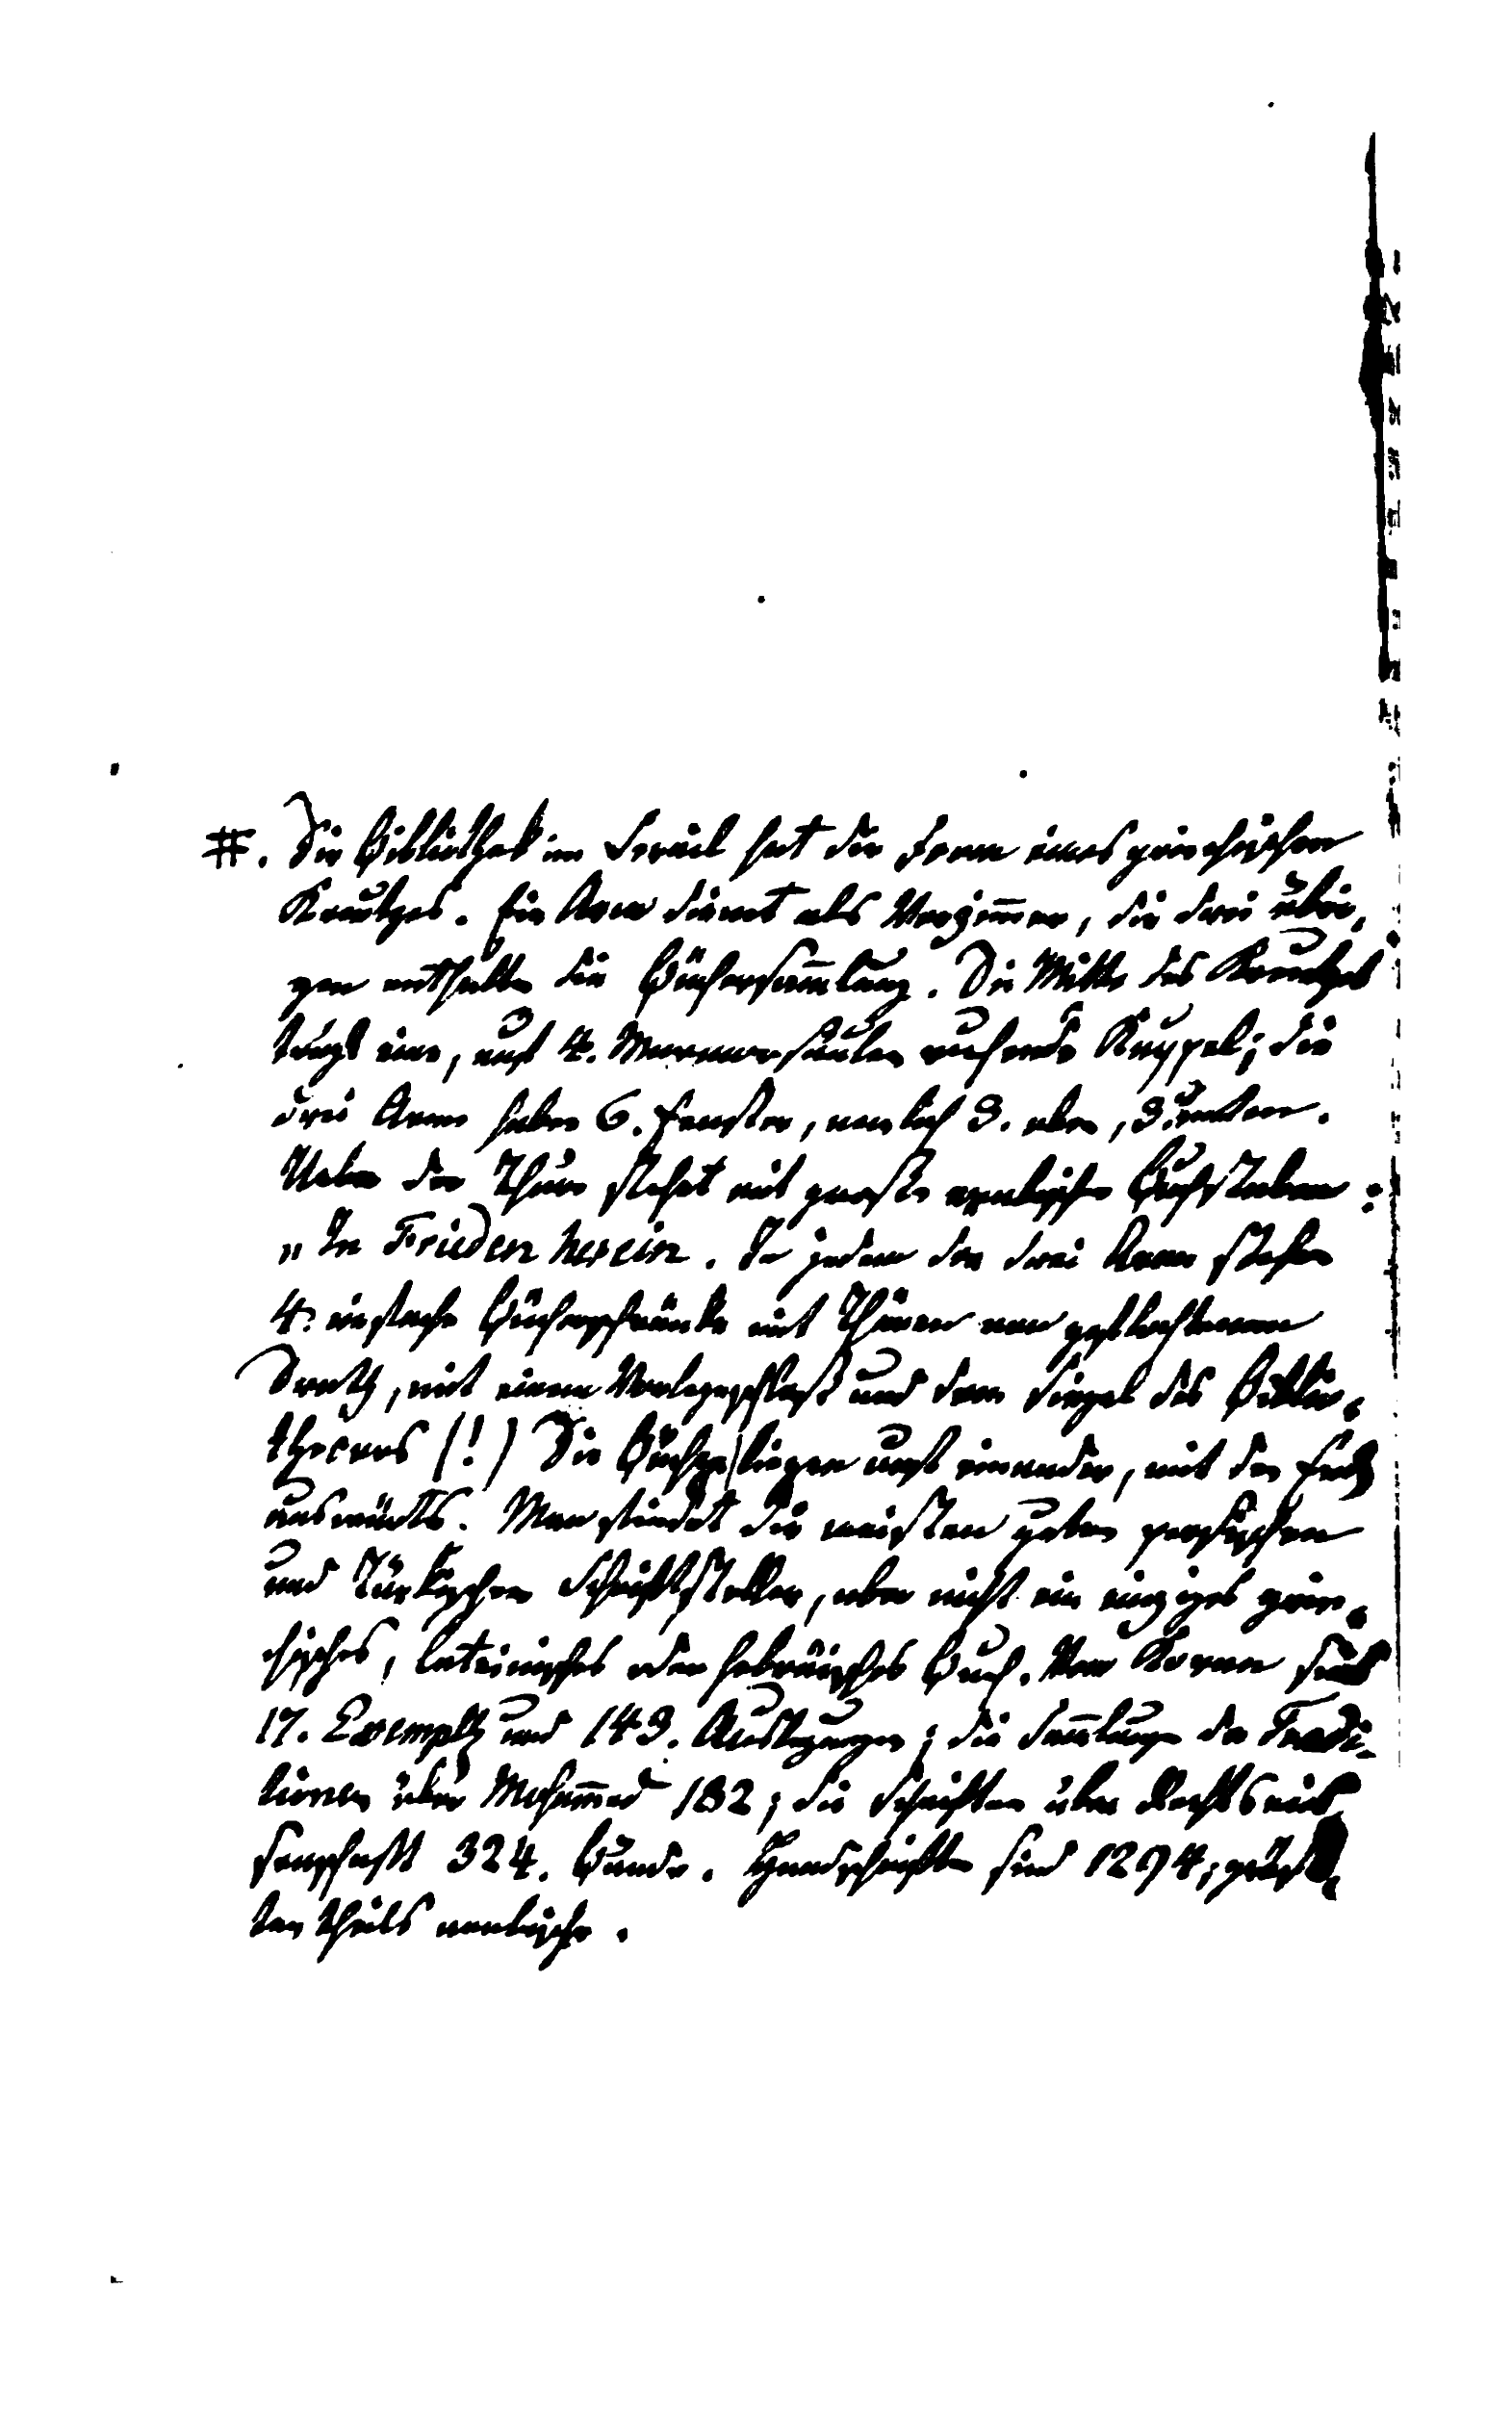 #. Die Bibliothek im Serail hat die Form eines griechischen
Kreutzes. Ein Arm dient als Vorzimmer, die drei übri-
gen enthalten die Büchersammlung. Die Mitte des Kreutzes
trägt eine, auf 4. Marmorsäulen ruhende Kuppel; die
drei Arme haben 6. Fenster, nemlich 3. oben, 3. unten.
Ueber der Thüre stehet mit großen arabischen Buchstaben:
„In Frieden herein. In jedem der drei Arme stehen
4. einfache Bücherschränke mit Thüren von geflochtenem
Drath, mit einem Vorlegeschloß und dem Siegel des Biblio-
thecars (!) Die Bücher liegen auf einander, mit den
auswärts. Man findet die meisten guten persischen
und Türkischen Schriftsteller, aber nicht ein einziges grie-
chisches, lateinisches oder hebräisches Buch. Vom Koran sind
17. Exempl und 143. Auslegungen; die Samlungen der Tradi-
tionen über Mohammed 182; die Schriften über Rechtswis-
senschaft 324. Bände. Handschriften sind 1294; größ-
ten theils arabische.